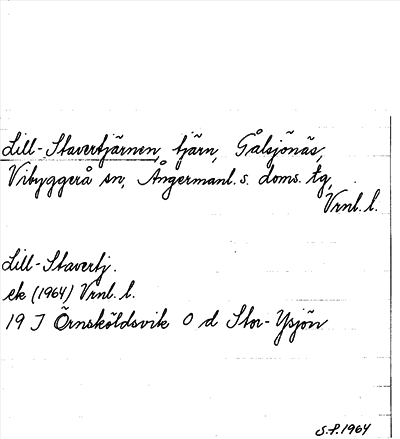 Lill-Stavertjärnen, tjärn, Gålsjönäs,
Vibyggerå sn, Ångermanl. s. doms. tg,
Vrnl. l.
Lill-Stavertj.
ek (1964) Vrnl. l.
19 J Örnsköldsvik 0 d Stor-Ysjön
S.F. 1964